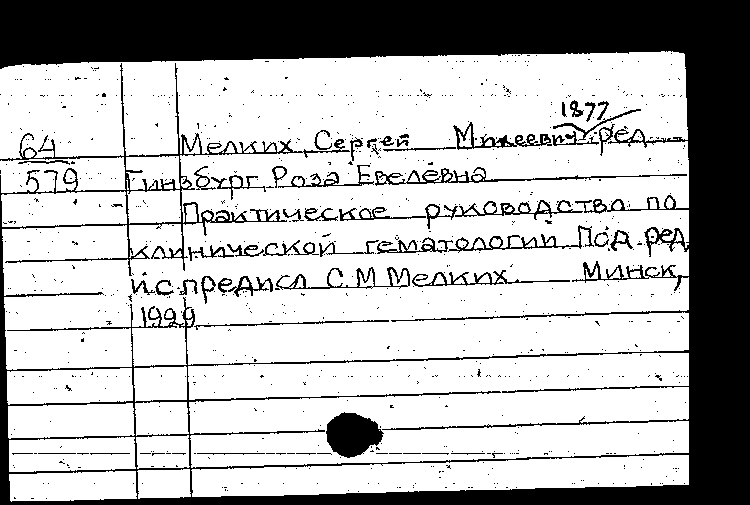 1877
64 Мелких, Сергей Михеевич ред.
579 Гинзбург, Роза Евелевна
Практическое руководство по
клинической гематологии. Под. ред.
и с предисл С. М Мелких. Минск,
1929